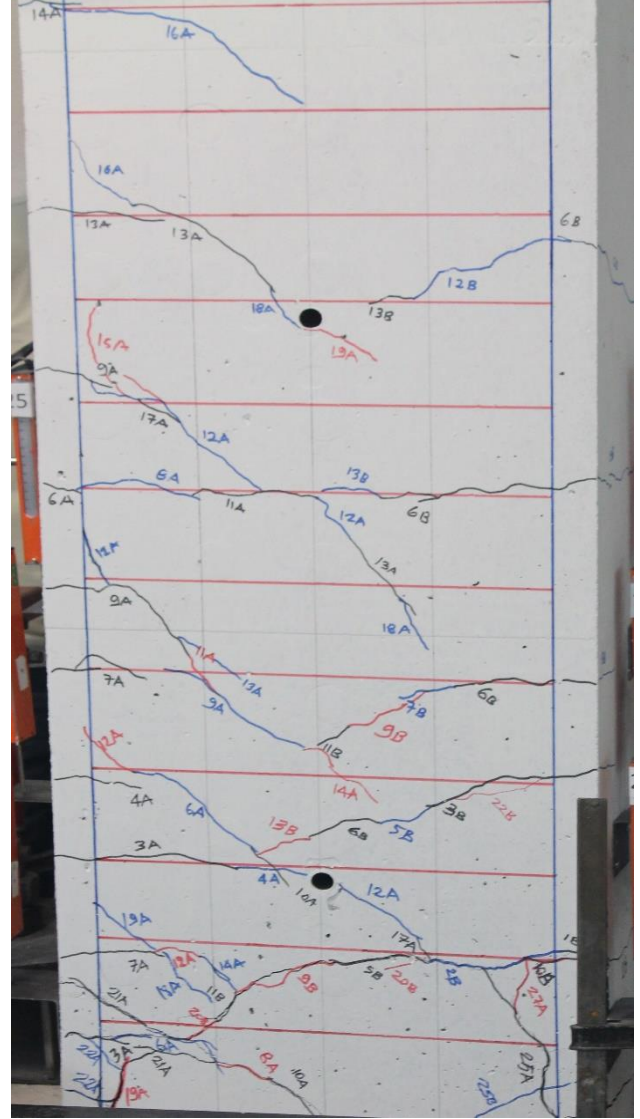 14A
16A
16A
13A
13A
6B
12B
18A
13B
19A
15A
9A
17A
12A
25
8A
13B
6A
11A
12A
6B
12A
13A
9A
18A
11A
13A
7A
9A
7B
6B
9B
11B
12A
14A
4A
6A
3B
22B
13B
6B
5B
3A
4A
10A
12A
19A
17A
7A
12A
14A
9B
5B
20B
2B
10B
11B
27A
21A
3A
21A
8A
10A
25A
22A
22A
19A
25B